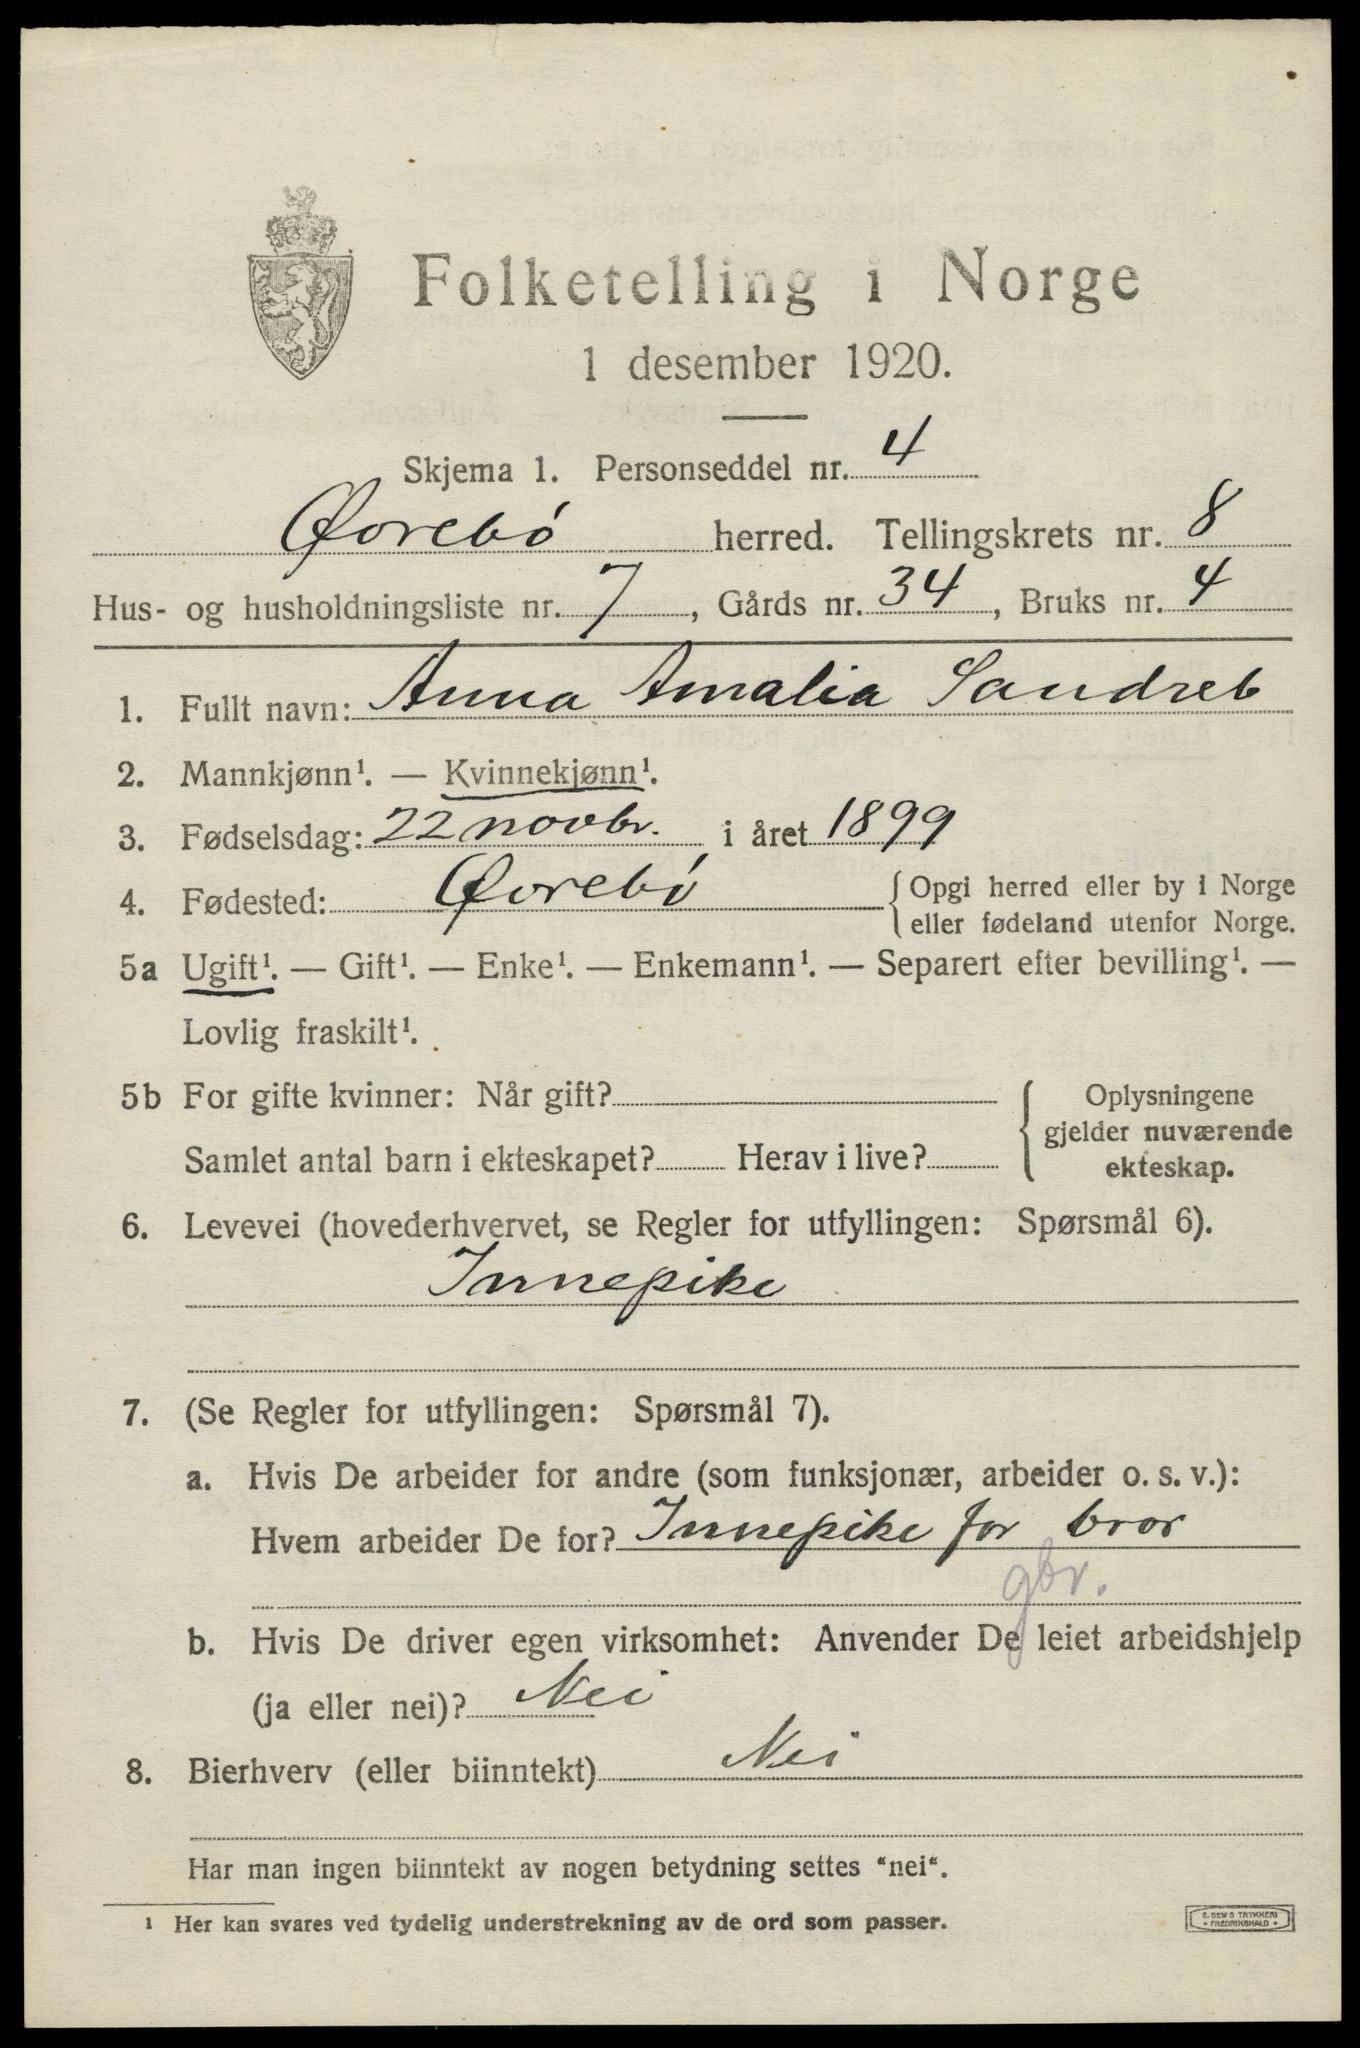 Folketelling i Norge
1 desember 1920.
Skjema 1. Personseddel nr. 4
Øvrebø herred. Tellingskrets nr. 8
Hus- og husholdningsliste nr. 7, Gårds nr. 34, Bruks nr. 4
1. Fullt navn: Anna Amalia Sandreb
2. Mannkjønn¹. — Kvinnekjønn¹.
3. Fødselsdag: 22 novbr. i året 1899
4. Fødested: Øvrebø {Opgi herred eller by i Norge
eller fødeland utenfor Norge.
5a Ugift¹. — Gift¹. — Enke¹. — Enkemann¹. — Separert efter bevilling¹. —
Lovlig fraskilt¹.
5b For gifte kvinner: Når gift?
Samlet antal barn i ekteskapet? Herav i live?
Oplysningene
gjelder nuværende
ekteskap.
6. Levevei (hovederhvervet, se Regler for utfyllingen: Spørsmål 6).
Innepike
7. (Se Regler for utfyllingen: Spørsmål 7).
a. Hvis De arbeider for andre (som funksjonær, arbeider o. s. v.):
Hvem arbeider De for? Innepike for bror
gbr.
b. Hvis De driver egen virksomhet: Anvender De leiet arbeidshjelp
(ja eller nei)? Nei
8. Bierhverv (eller biinntekt) Nei
Har man ingen biinntekt av nogen betydning settes "nei".
¹ Her kan svares ved tydelig understrekning av de ord som passer.